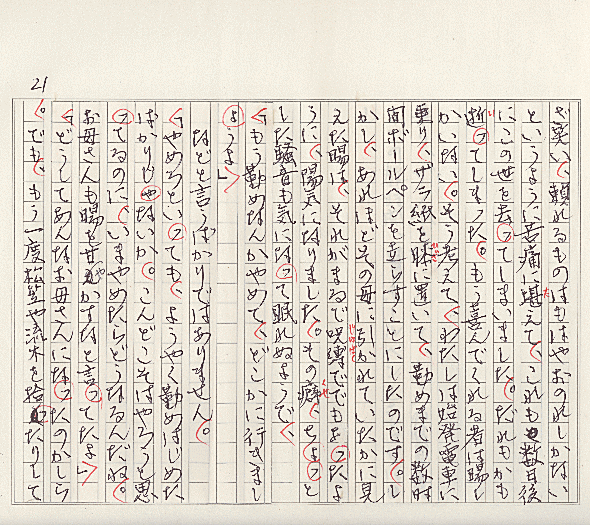 21
ざ寒い、頼れるものはもはやおのれしかない
というように苦痛に堪えて、これも数日後
にこの世を去ってしまいました。だれもかも
逝ってしまった。もう喜んでくれる者は暘し
かいない。そう考えて、わたしは始発電車に
乗り、ザラ紙を膝に置いて、勤めまでの数時
間ボールペンを走らすことにしたのです。し
かし、あれほどその母にひかれていたかに見
えた暘は、それがまるで呪縛ででもあったよ
うに、陽気になりました。その癖、ちょっと
した騒音も気になって眠れぬようで、
「もう勤めなんかやめて、どこかに行きまし
ょうよ」
などと言うばかりではありません。
「やめろといっても、ようやく勤めはじめた
ばかりじゃないか。こんどこそはやろうと思
ってるのに、いまやめたらどうなるんだね。
お母さんも暘を甘やかすなと言ってたよ」
「どうしてあんなお母さんになったのかしら
。でも、もう一度松笠や流木を拾ったりして